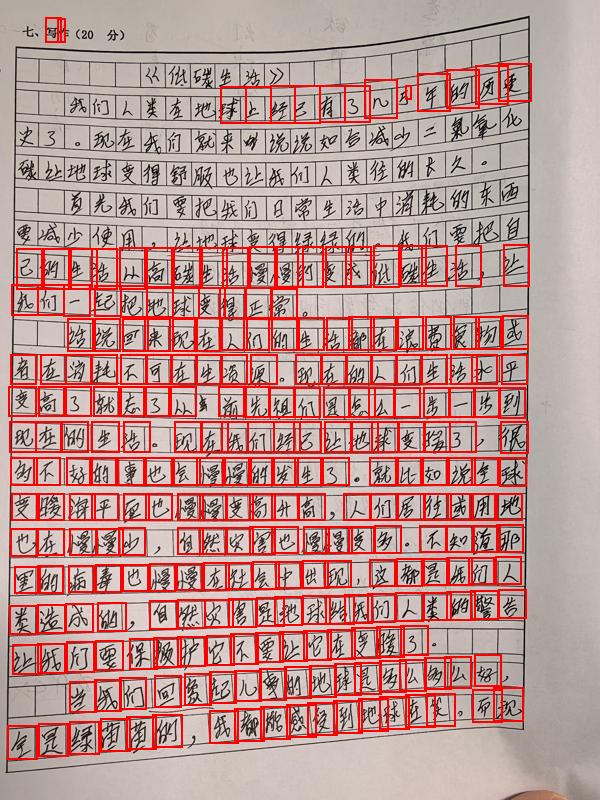 七、写作(20 分)
《低碳生活》
我们人类在地球上经已有了几年的历史
史了。现在我们就来说说如合减少二氧氧化
碳让地球变得舒服也让我们人类住的长久。
首先我们要把我们日常生活中消耗的东西
要减少使用,让地球变得绿绿的,我们要把自
己的生活从高碳生活慢慢的变成低碳生活,让
我们一起把地球变得正常。
话说回来现在人们的生活都在浪费食物或
者在消耗不可在生资源。现在的人们生活水平
变高了就忘了从前先祖们是怎么一步一步到
现在的生活。现在我们经已让地球变暖了,很
多不好的事也会慢慢的发生了。就比如说全球
变暖海平面也慢慢变高升高,人们居住或用地
也在慢慢少,自然灾害也慢慢变多。不知道那
里的病毒也慢慢在社会中出现,这都是我们人
类造成的,自然灾害是地球给我们人类的警告
让我们要保护它不要让它在变暖了。
当我们回复起儿事的地球是多么多么好,
全是绿茵茵的,我都能感受到地球在笑。而现